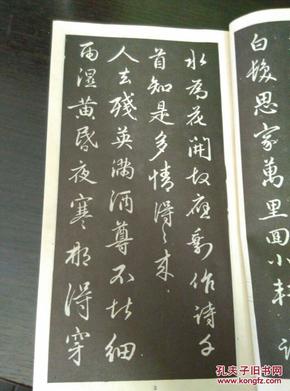 白髮思家萬里回小軒
水為花開故應剩作詩千
首知是多情得々來
人去殘英滿酒尊不堪細
雨濕黃昏夜寒那得穿
孔夫子旧书网